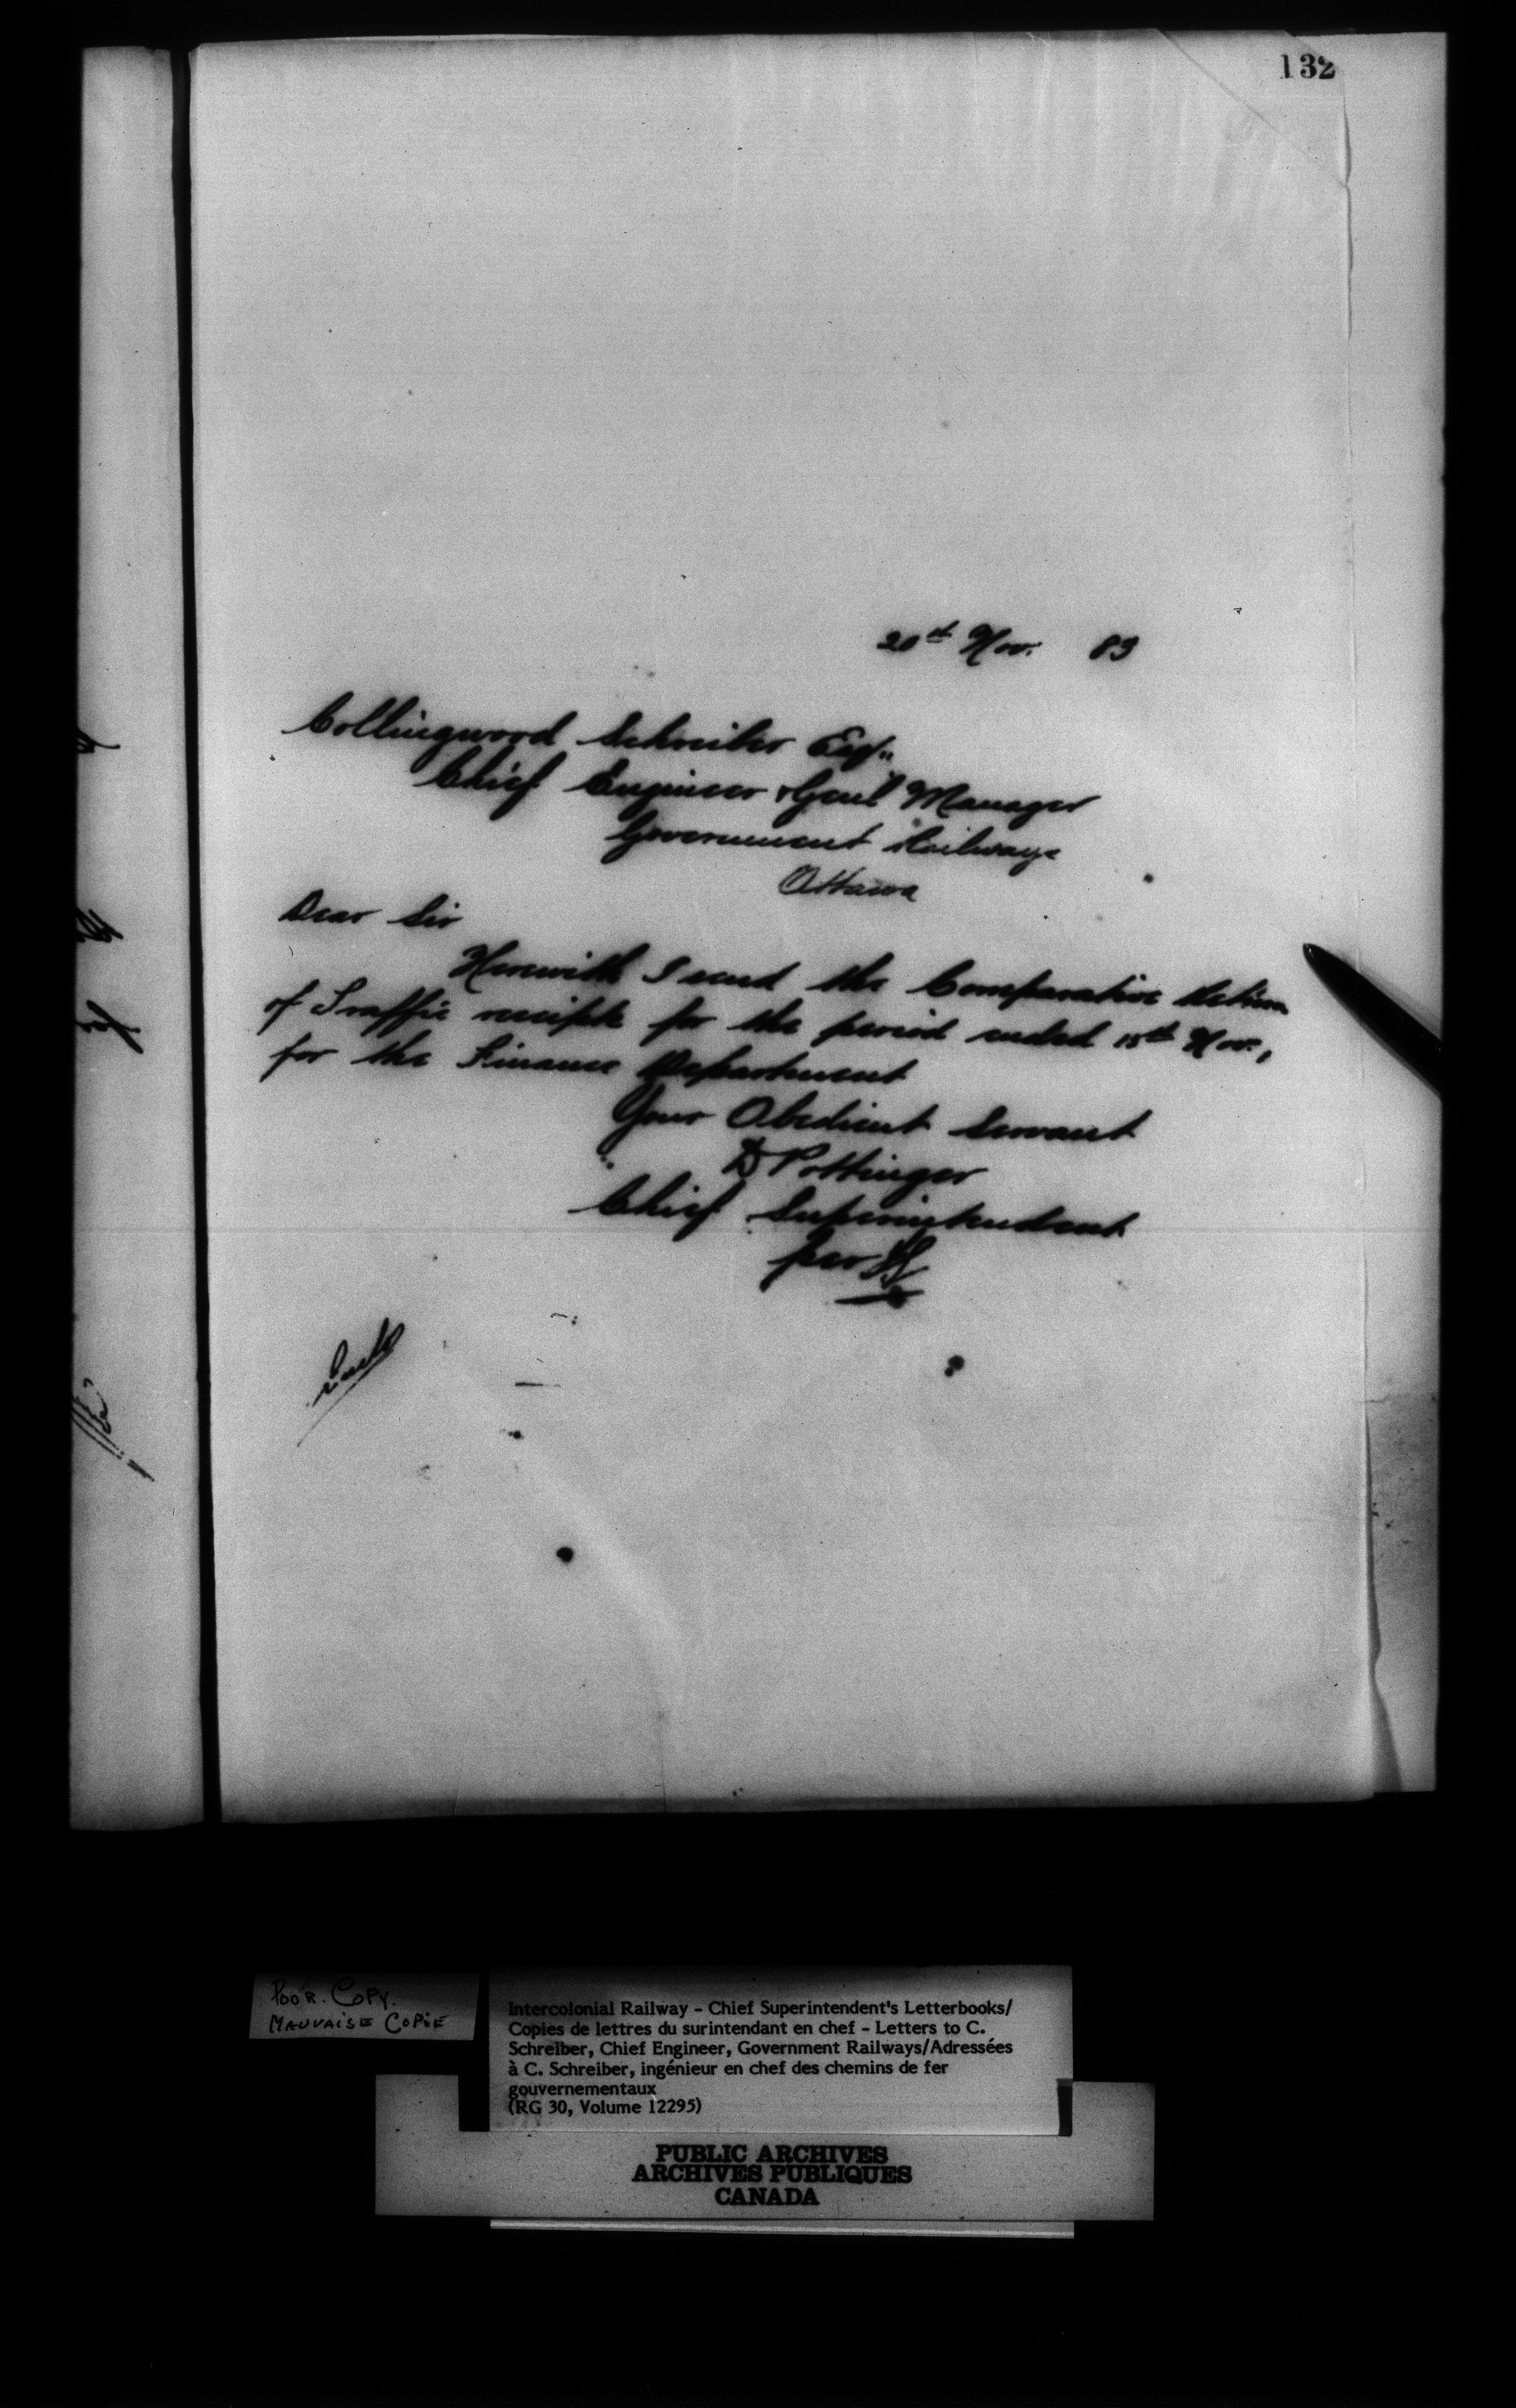 132
20th Nov. 83
Collingwood Schreiber Esq.,
Chief Engineer & Genl Manager
Government Railways
Ottawa
Dear Sir
Herewith I send the Comparative Return
of Traffic receipts for the period ended 15th Nov.,
for the Finance Department
Your Obedient Servant
D Pottinger
Chief Superintendent
per
POOR. COPY.
MAUVAISE COPIE
Intercolonial Railway - Chief Superintendent's Letterbooks/
Copies de lettres du surintendant en chef - Letters to C.
Schreiber, Chief Engineer, Government Railways/Adressées
à C. Schreiber, ingénieur en chef des chemins de fer
gouvernementaux
(RG 30, Volume 12295)
PUBLIC ARCHIVES
ARCHIVES PUBLIQUES
CANADA